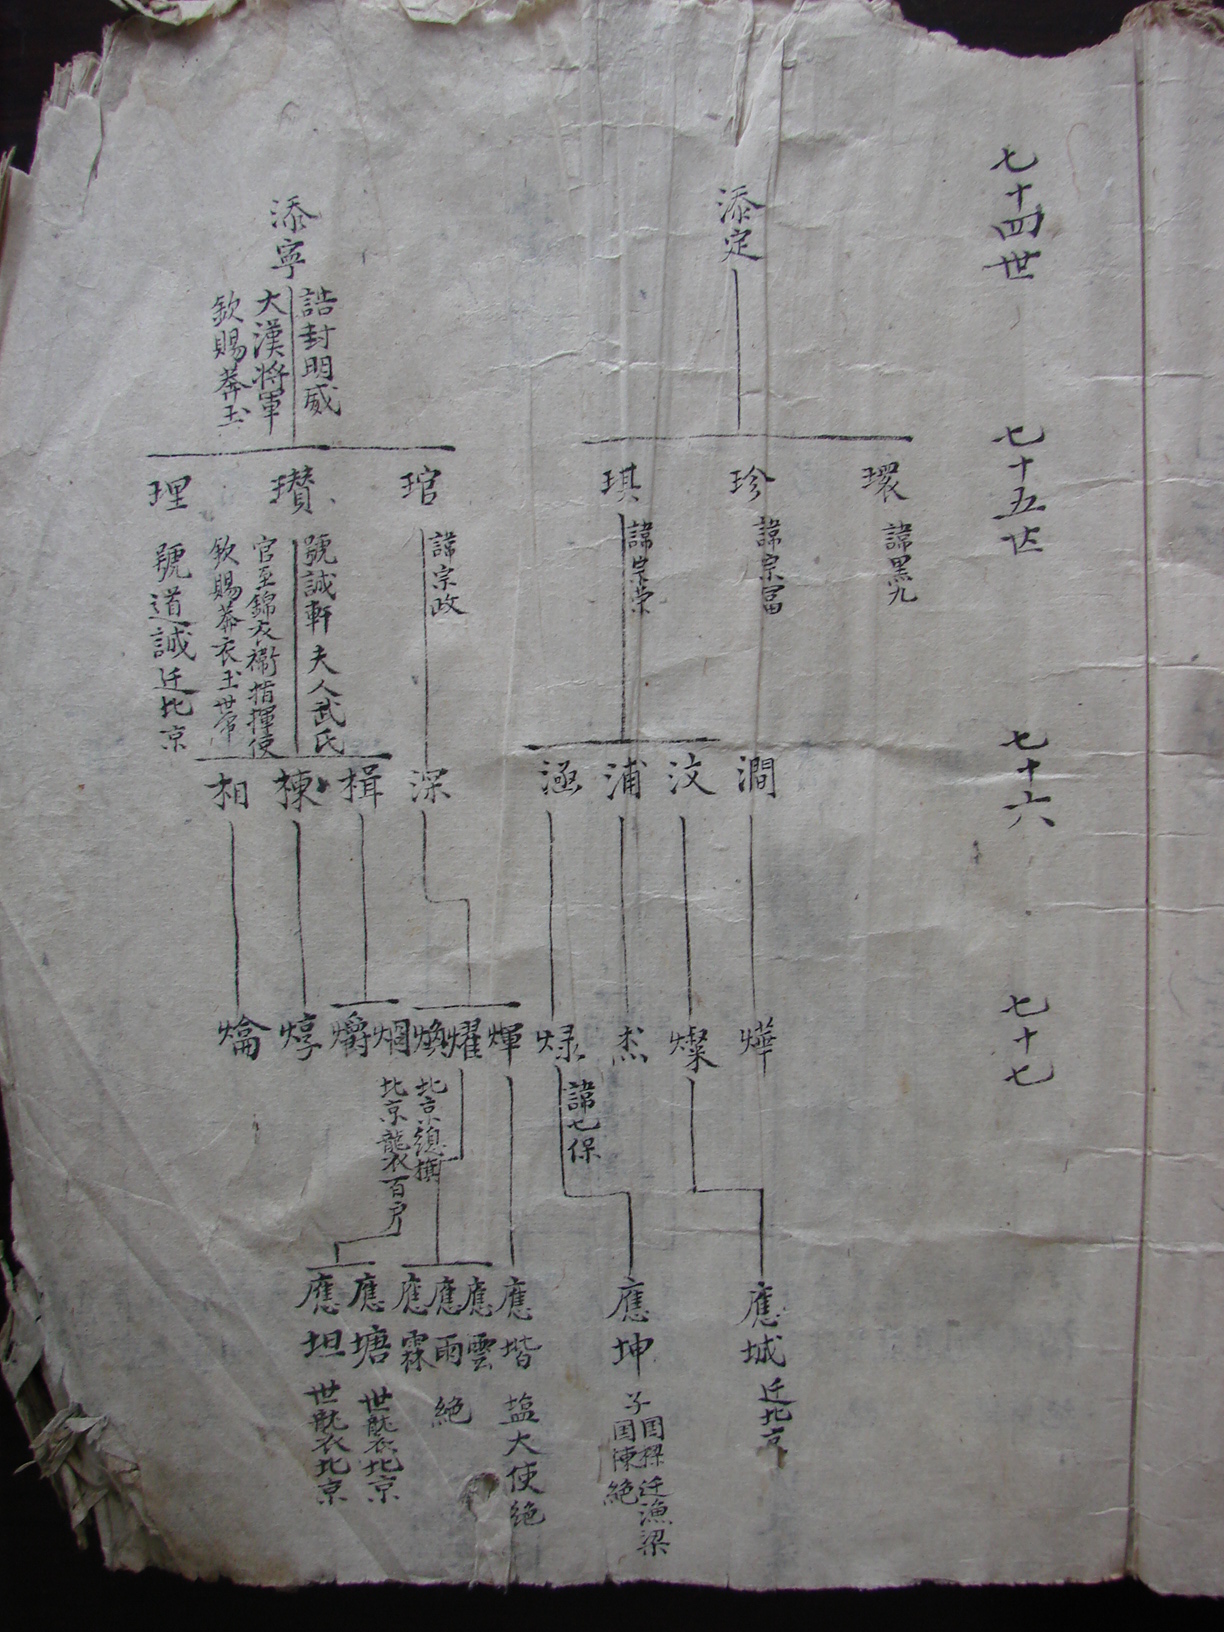 七十四世
添定
添寧
誥封明威
大漢將軍
欽賜莽玉
七十五世
環
諱黑九
珍
諱宗富
琪
諱宗荣
琯
諱宗政
瓚
號誠軒 夫人武氏
官至錦衣衛指揮使
欽賜莽衣玉世帶
理
號道誠迁北京
七十六
澗
汶
浦
涵
深
楫
棟
相
七十七
燁
燦
杰
炢
諱七保
煇
耀
焕
北京總旗
烱
北京龍衣百户
爝
焞
爚
應城
迁北京
應坤
子国樑迁漁梁
国陳絕
應堦
塩大使絕
應雲
應雨
絕
應霖
應塘
世龍衣北京
應坦
世龍衣北京